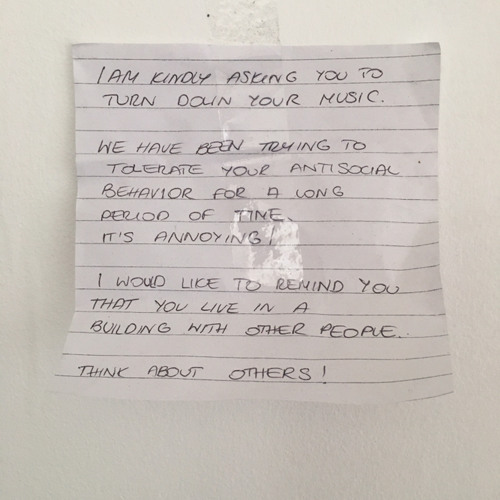 I AM KINDLY ASKING YOU TO
TURN DOWN YOUR MUSIC.
WE HAVE BEEN TRYING TO
TOLERATE YOUR ANTISOCIAL
BEHAVIOR FOR A LONG
PERIOD OF TIME.
IT'S ANNOYING!
I WOULD LIKE TO REMIND YOU
THAT YOU LIVE IN A
BUILDING WITH OTHER PEOPLE..
THINK ABOUT OTHERS!